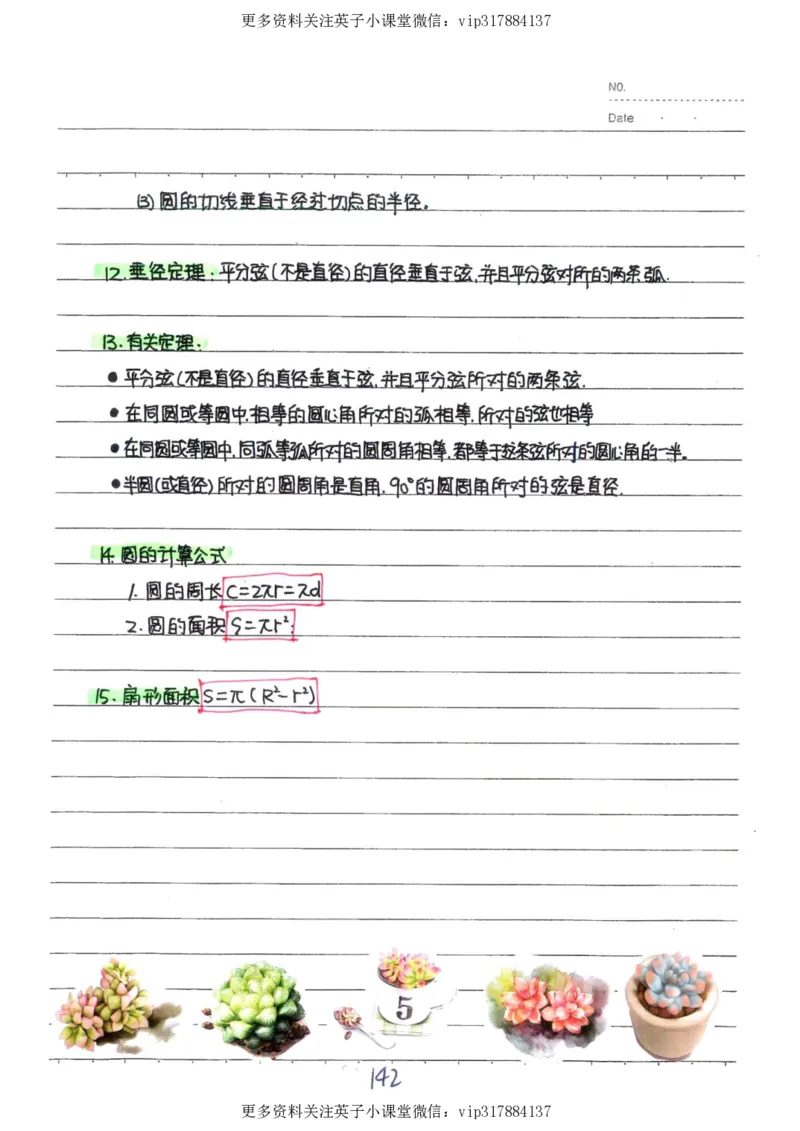 更多资料关注英子小课堂微信：vip317884137
NO.
Date
(3) 圆的切线垂直于经过切点的半径。
12.垂径定理：平分弦(不是直径)的直径垂直于弦,并且平分弦对所的两条弧.
13.有关定理：
●平分弦(不是直径)的直径垂直于弦,并且平分弦所对的两条弦.
●在同圆或等圆中,相等的圆心角所对的弧相等,所对的弦也相等
●在同圆或等圆中,同弧等弧所对的圆周角相等,都等于这条弦所对的圆心角的一半。
●半圆(或直径)所对的圆周角是直角,90°的圆周角所对的弦是直径.
14.圆的计算公式
1.圆的周长C=2πr=πd
2.圆的面积S=πr²;
15.扇形面积S=π(R²-r²)
5
142
更多资料关注英子小课堂微信：vip317884137